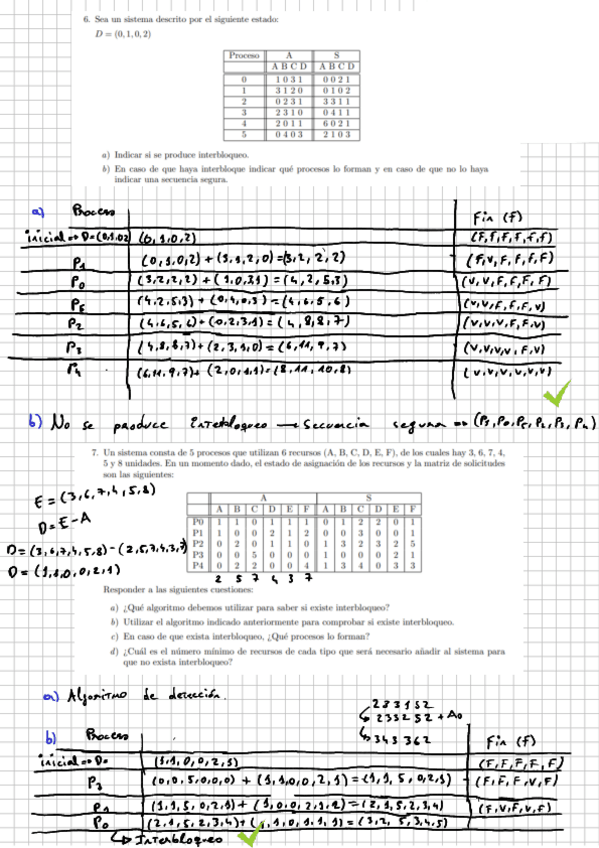 6. Sea un sistema descrito por el siguiente estado:
D = (0, 1, 0, 2)
Proceso A S
A B C D A B C D
0 1 0 3 1 0 0 2 1
1 3 1 2 0 0 1 0 2
2 0 2 3 1 3 3 1 1
3 2 3 1 0 0 4 1 1
4 2 0 1 1 6 0 2 1
5 0 4 0 3 2 1 0 3
a) Indicar si se produce interbloqueo.
b) En caso de que haya interbloque indicar qué procesos lo forman y en caso de que no lo haya
indicar una secuencia segura.
a) Proceso Fin (f)
inicial => D=(0,1,02) (0,1,0,2) (F,F,F,F,F,F)
P1 (0,1,0,2) + (3,1,2,0) = (3,2,2,2) (F,V,F,F,F,F)
P0 (3,2,2,2) + (1,0,3,1) = (4,2,5,3) (V,V,F,F,F,F)
P5 (4,2,5,3) + (0,4,0,3) = (4,6,5,6) (V,V,F,F,F,V)
P2 (4,6,5,6) + (0,2,3,1) = (4,8,8,7) (V,V,V,F,F,V)
P3 (4,8,8,7) + (2,3,1,0) = (6,11,9,7) (V,V,V,V,F,V)
P4 (6,11,9,7) + (2,0,1,1) = (8,11,10,8) (V,V,V,V,V,V)
b) No se produce interbloqueo → Secuencia segura => (P1,P0,P5,P2,P3,P4)
7. Un sistema consta de 5 procesos que utilizan 6 recursos (A, B, C, D, E, F), de los cuales hay 3, 6, 7, 4,
5 y 8 unidades. En un momento dado, el estado de asignación de los recursos y la matriz de solicitudes
son las siguientes:
E = (3,6,7,4,5,8)
D = E - A
D = (3,6,7,4,5,8) - (2,5,7,4,3,7)
D = (1,1,0,0,2,1)
A S
A B C D E F A B C D E F
P0 1 1 0 1 1 1 0 1 2 2 0 1
P1 1 0 0 2 1 2 0 0 3 0 0 1
P2 0 2 0 1 1 0 1 3 2 3 2 5
P3 0 0 5 0 0 0 1 0 0 0 2 1
P4 0 2 2 0 0 4 1 3 4 0 3 3
2 5 7 4 3 7
Responder a las siguientes cuestiones:
a) ¿Qué algoritmo debemos utilizar para saber si existe interbloqueo?
b) Utilizar el algoritmo indicado anteriormente para comprobar si existe interbloqueo.
c) En caso de que exista interbloqueo, ¿Qué procesos lo forman?
d) ¿Cuál es el número mínimo de recursos de cada tipo que será necesario añadir al sistema para
que no exista interbloqueo?
a) Algoritmo de detección.
233152
233252 + A0
343362
b) Proceso Fin (f)
inicial => D= (1,1,0,0,2,1) (F,F,F,F,F)
P3 (0,0,5,0,0,0) + (1,1,0,0,2,1) = (1,1,5,0,2,1) (F,F,F,V,F)
P1 (1,1,5,0,2,1) + (1,0,0,2,1,2) = (2,1,5,2,3,4) (F,V,F,V,F)
P0 (2,1,5,2,3,4) + (1,1,0,1,1,1) = (3,2,5,3,4,5)
↳ Interbloqueo